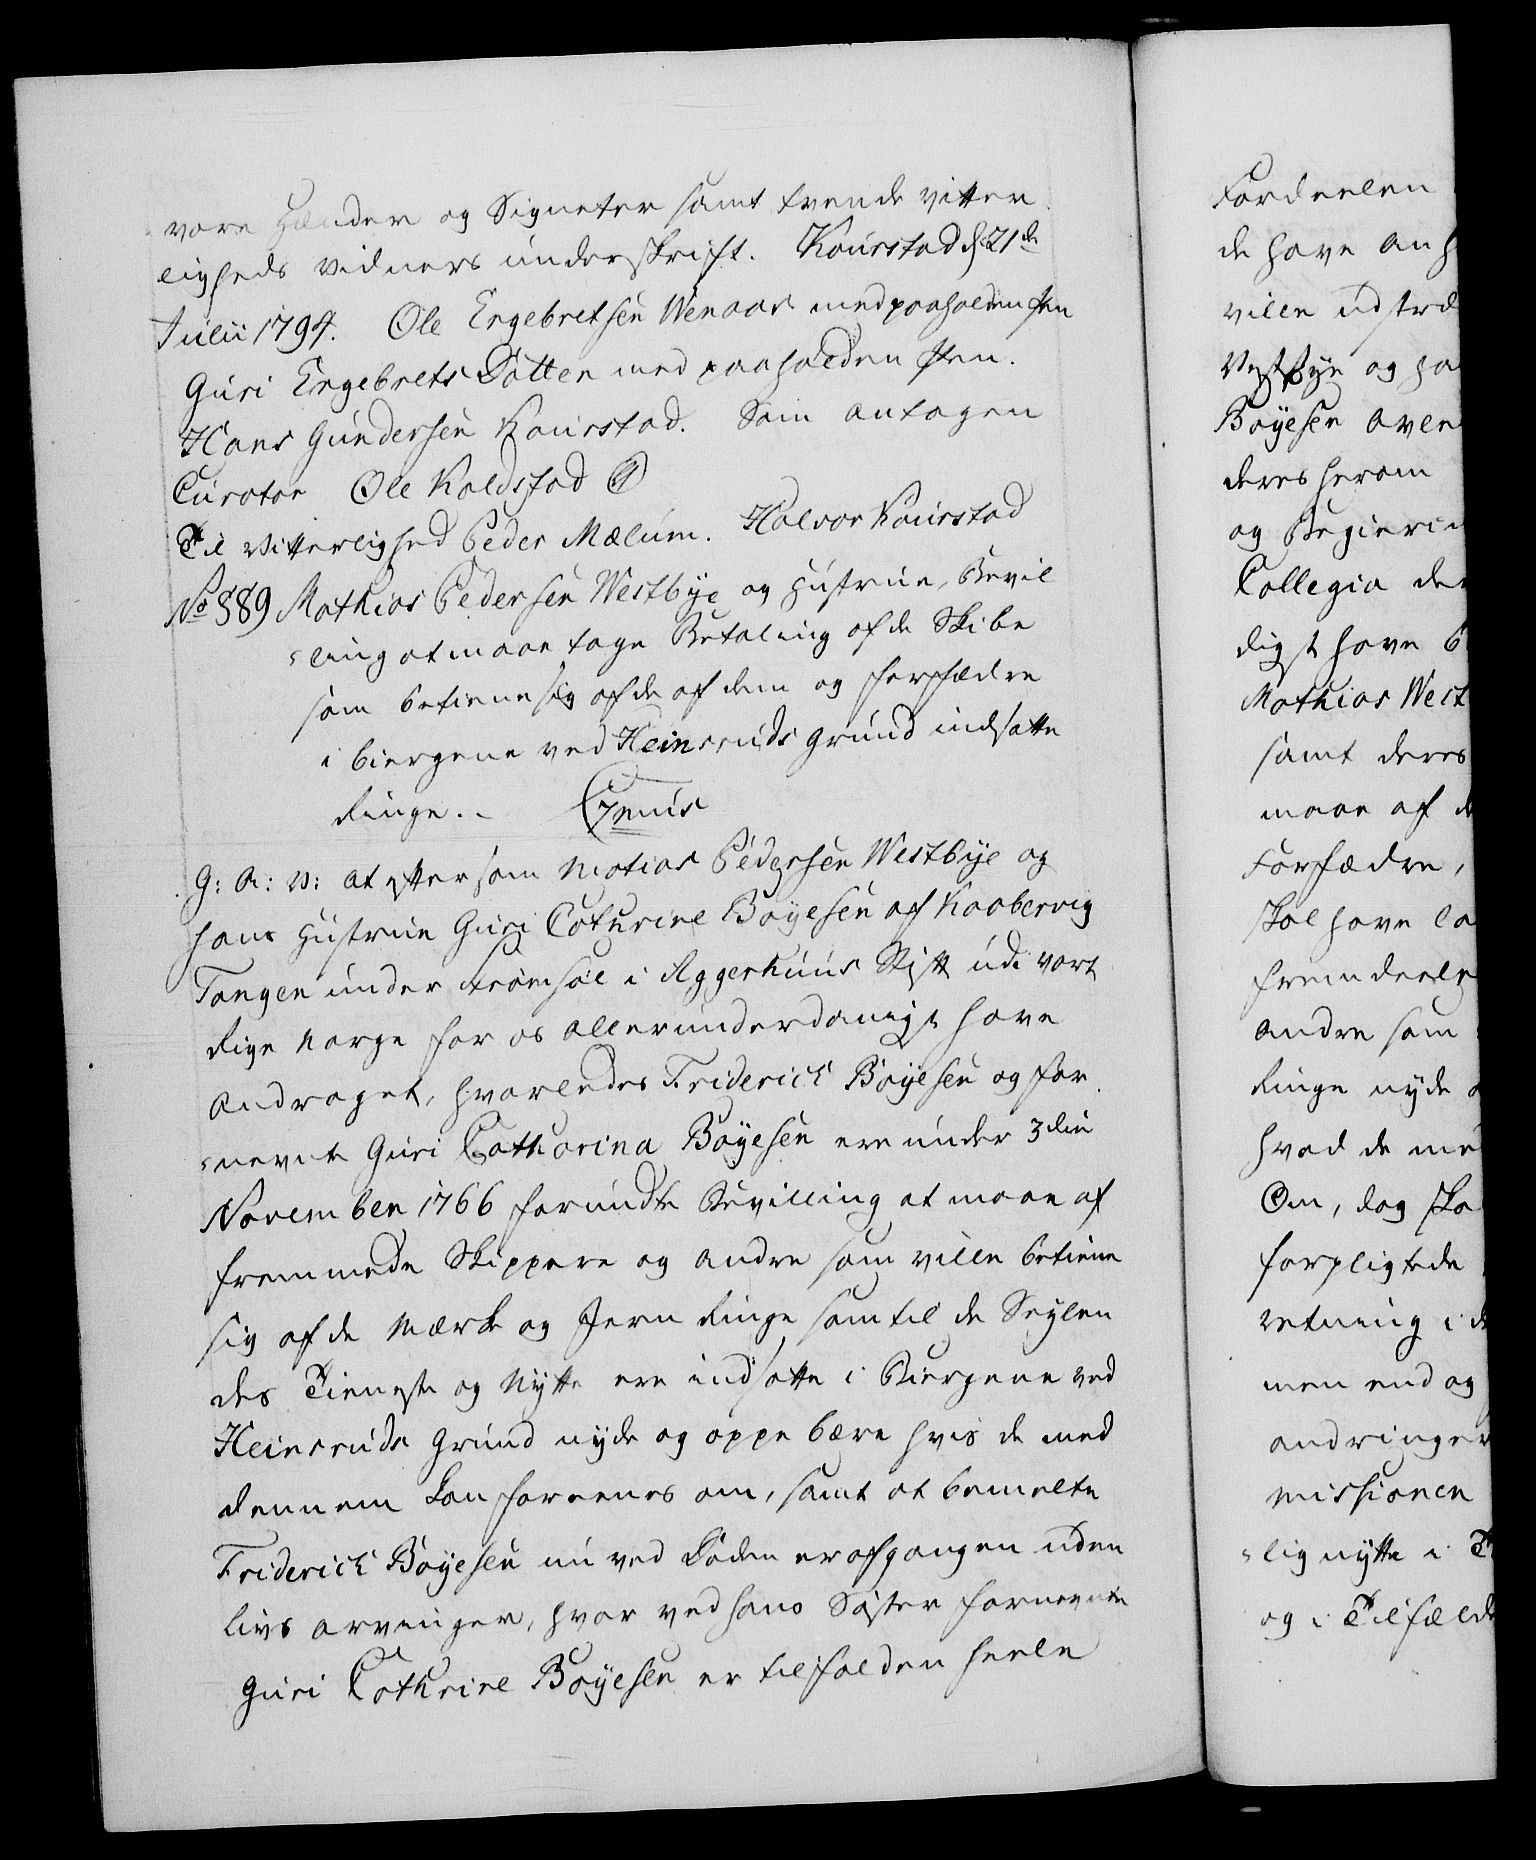 vore Hænder og Signeter samt tvende vitter
ligheds vidners underskrift. Kourstad d 21de
Julii 1794. Ole Engebretsen Wenaas med paaholden Pen
Guri Engebrets Dotter med paaholden Pen.
Hans Gundersen Kourstad. Som antagen
Curator Ole Koldstad
Til Vitterlighed Peder Mælum. Halvor Kourstad
No 889 Mathias Pedersen Westbye og Hustrue, Bevil
ling at maae tage Betaling af de Skibe
som betiene sig af de af dem og forfædre
i biergene ved Heinsruds grund indsatte
Ringe.. Gratis
G: A: V: at eftersom Matias Pedersen Westbye og
hans Hustrue Guri Cathrine Boyesen af Kaabervig
Tangen under Fromsøe i Aggerhuus Stift udi vort
Rige Norge for os allerunderdanigst have
andraget, hvorledes Friderich Boyesen og for
nevnte Guri Catharina Boyesen ere under 3die
November 1766 forundte Bevilling at maae af
fremmede Skippere og andre som ville betiene
sig af de Mærke og Jern Ringe som til de Seylen
des Tieneste og Nytte ere indsatte i Biergene ved
Heinsruds Grund nyde og oppebære hvis de med
dennem kan foreenes om, samt at bemelte
Friderich Boyesen nu ved Døden er afgangen uden
Livs arvinger, hvor ved hans Søster fornevnte
Guri Cathrine Boyesen er tilfalden heele
Fordeelen
de have anh
ville udstræ
Westbye og ha
Boyesen aven
deres herom
og Begierin
Collegia der
digst have b
Mathias West
samt deres
maae af d
Forfædre,
skal have la
fremdeele
andre som
Ringe nyde o
hvad de me
Om, dog ska
forpligtede
retning i d
men end og
andringer
missionen
lig nytte i T
og i Tilfælde